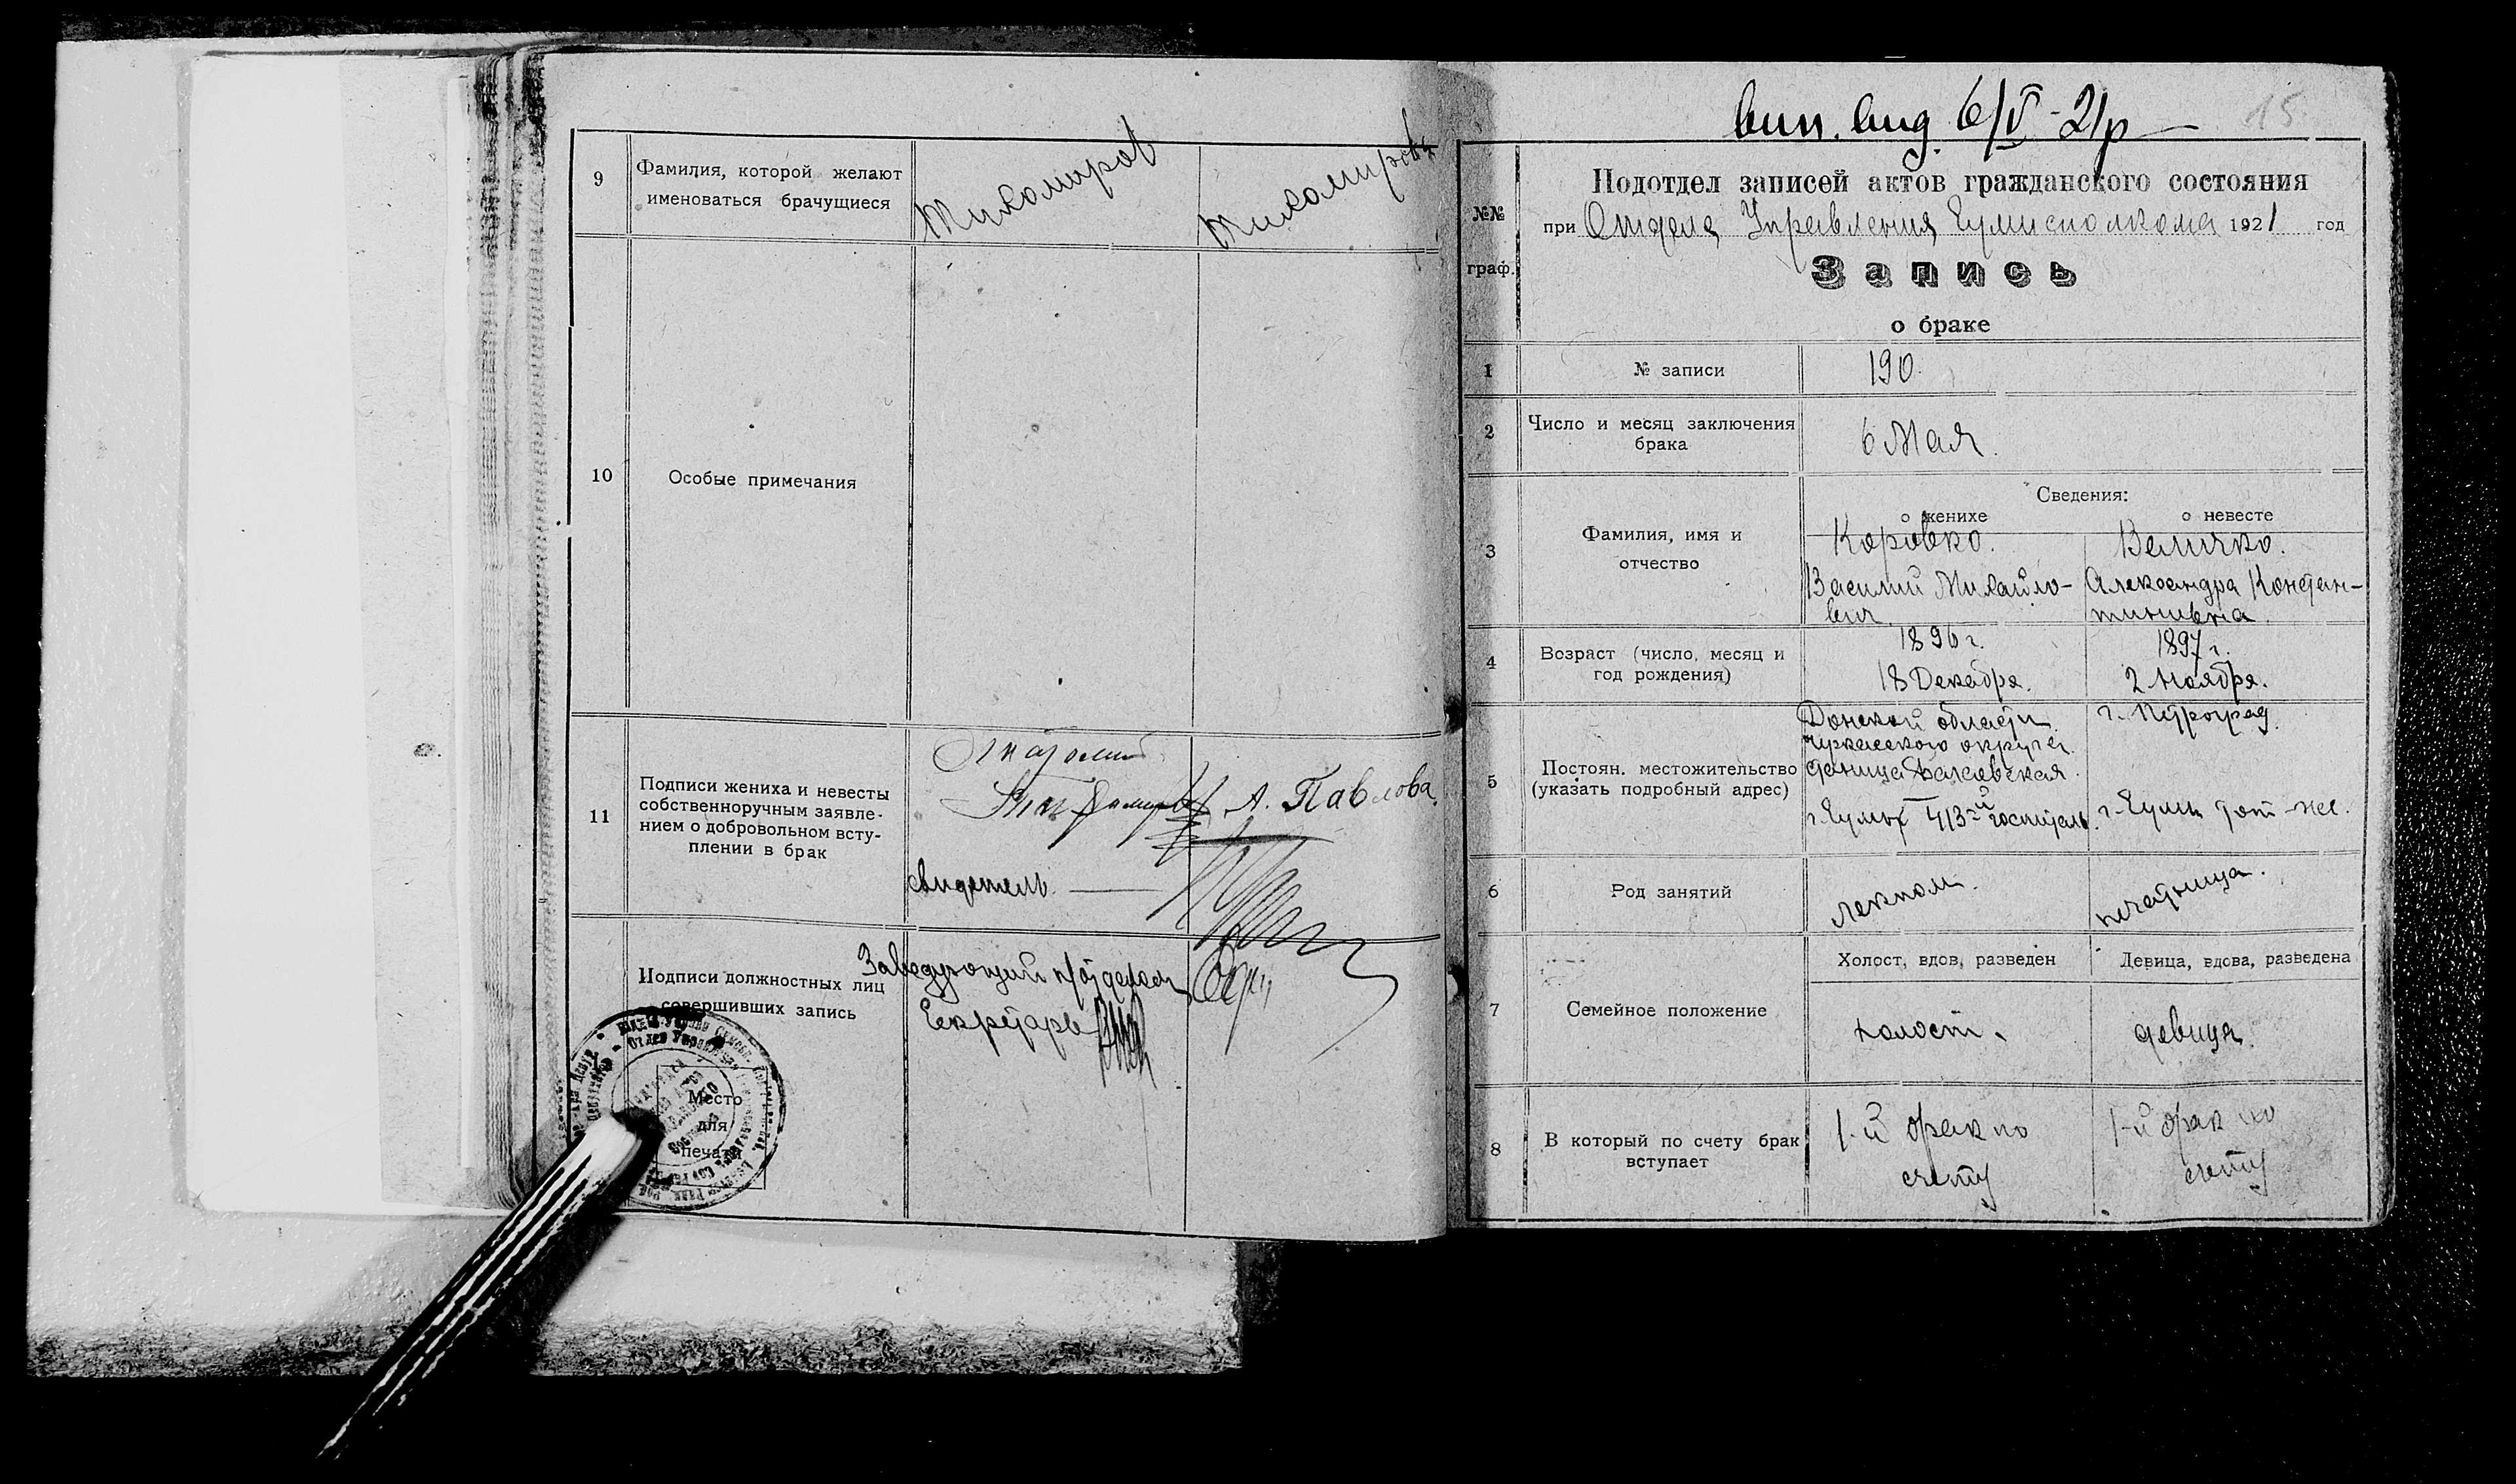 9
Фамилия, которой желают
именоваться брачущиеся
Тихомиров
Тихомирова
10
Особые примечания
11
Подписи жениха и невесты
собственноручным заявле-
нием о добровольном всту-
плении в брак
А. Павлова.
свидетель
Подписи должностных лиц
совершивших запись
Заведующий п/отделом
Секретарь
Место
для
печати
вып. вид. 6/V-21 г
15.
№№
граф.
Подотдел записей актов гражданского состояния
при Отделе Управления Сумисполкома 1921 год
Запись
о браке
1
№ записи
190.
2
Число и месяц заключения
брака
6 Мая.
Сведения:
о женихе
о невесте
3
Фамилия, имя и
отчество
Коровко.
Василий Михайло-
вич
Величко.
Александра Констан-
тиновна.
4
Возраст (число, месяц и
год рождения)
1896 г.
18 Декабря.
1897 г.
2 Ноября.
5
Постоян. местожительство
(указать подробный адрес)
Донской области
Черкасского округа.
станица
г. Сумы 413й госпиталь.
г. Петроград.
г. Сумы
6
Род занятий
лекпом.
7
Семейное положение
Холост, вдов, разведен
Девица, вдова, разведена
холост.
девица.
8
В который по счету брак
вступает
1-й брак по
счету
1-й брак по
счету